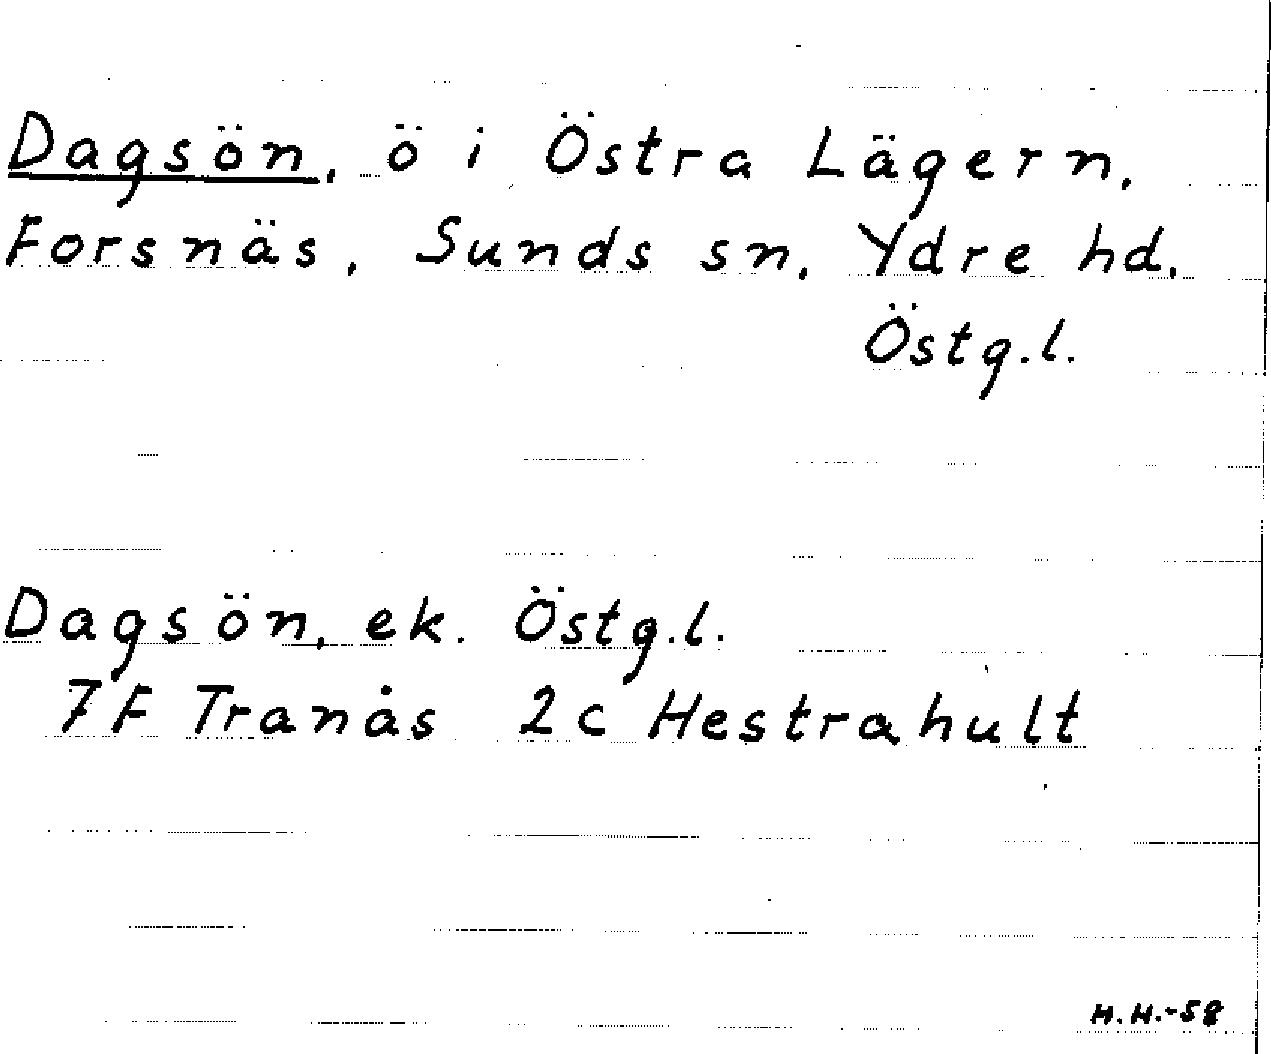 Dagsön, ö i Östra Lägern,
Forsnäs, Sunds sn, Ydre hd,
Östg.l.
Dagsön, ek. Östg.l.
7F Tranås 2c Hestrahult
H.H.-58